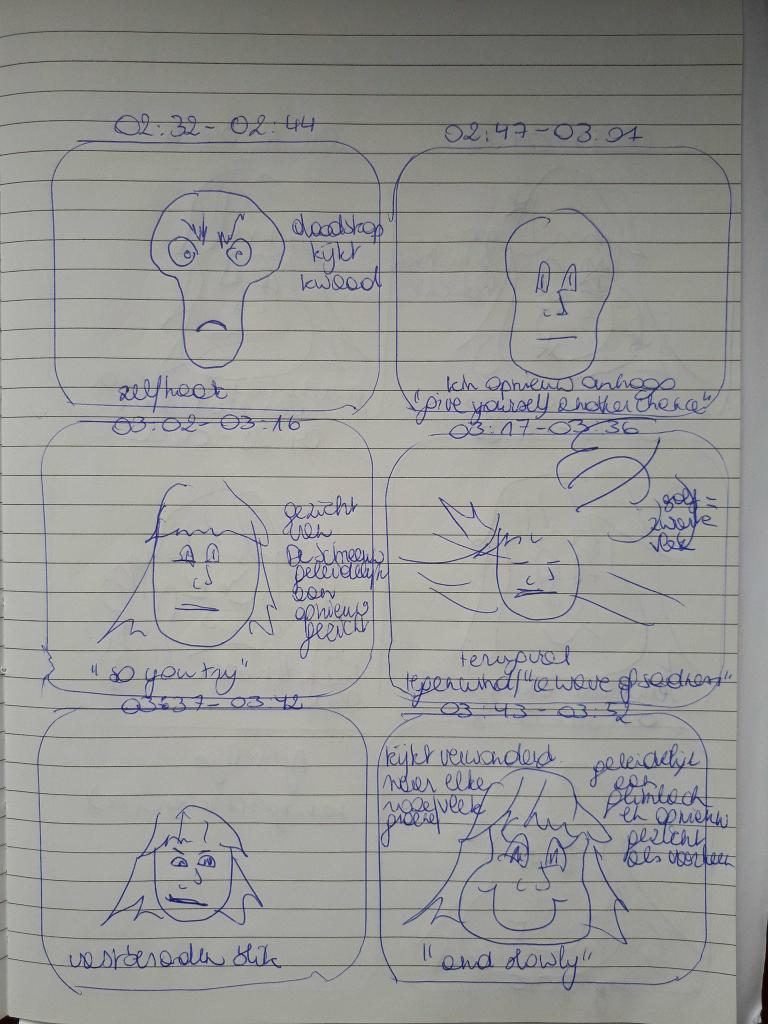 02:32 - 02:44
doodskop
kijkt
kwaad
zelfhaat
02:47 - 03:01
ich opnieuw
"give yourself another chance"
03:02 - 03:16
gezicht
van
De Schreeuw
geleidelijk
aan
opnieuw
gezicht
"so you try"
03:17 - 03:36
golf =
zwarte
vlek
terwijl
tegenwind / "a wave of sadness"
03:37 - 03:42
vastberaden blik
03:43 - 03:52
kijkt verwonderd
naar elke
groeien
geleidelijk
aan
glimlach
en opnieuw
gezicht
als voorheen
"and slowly"